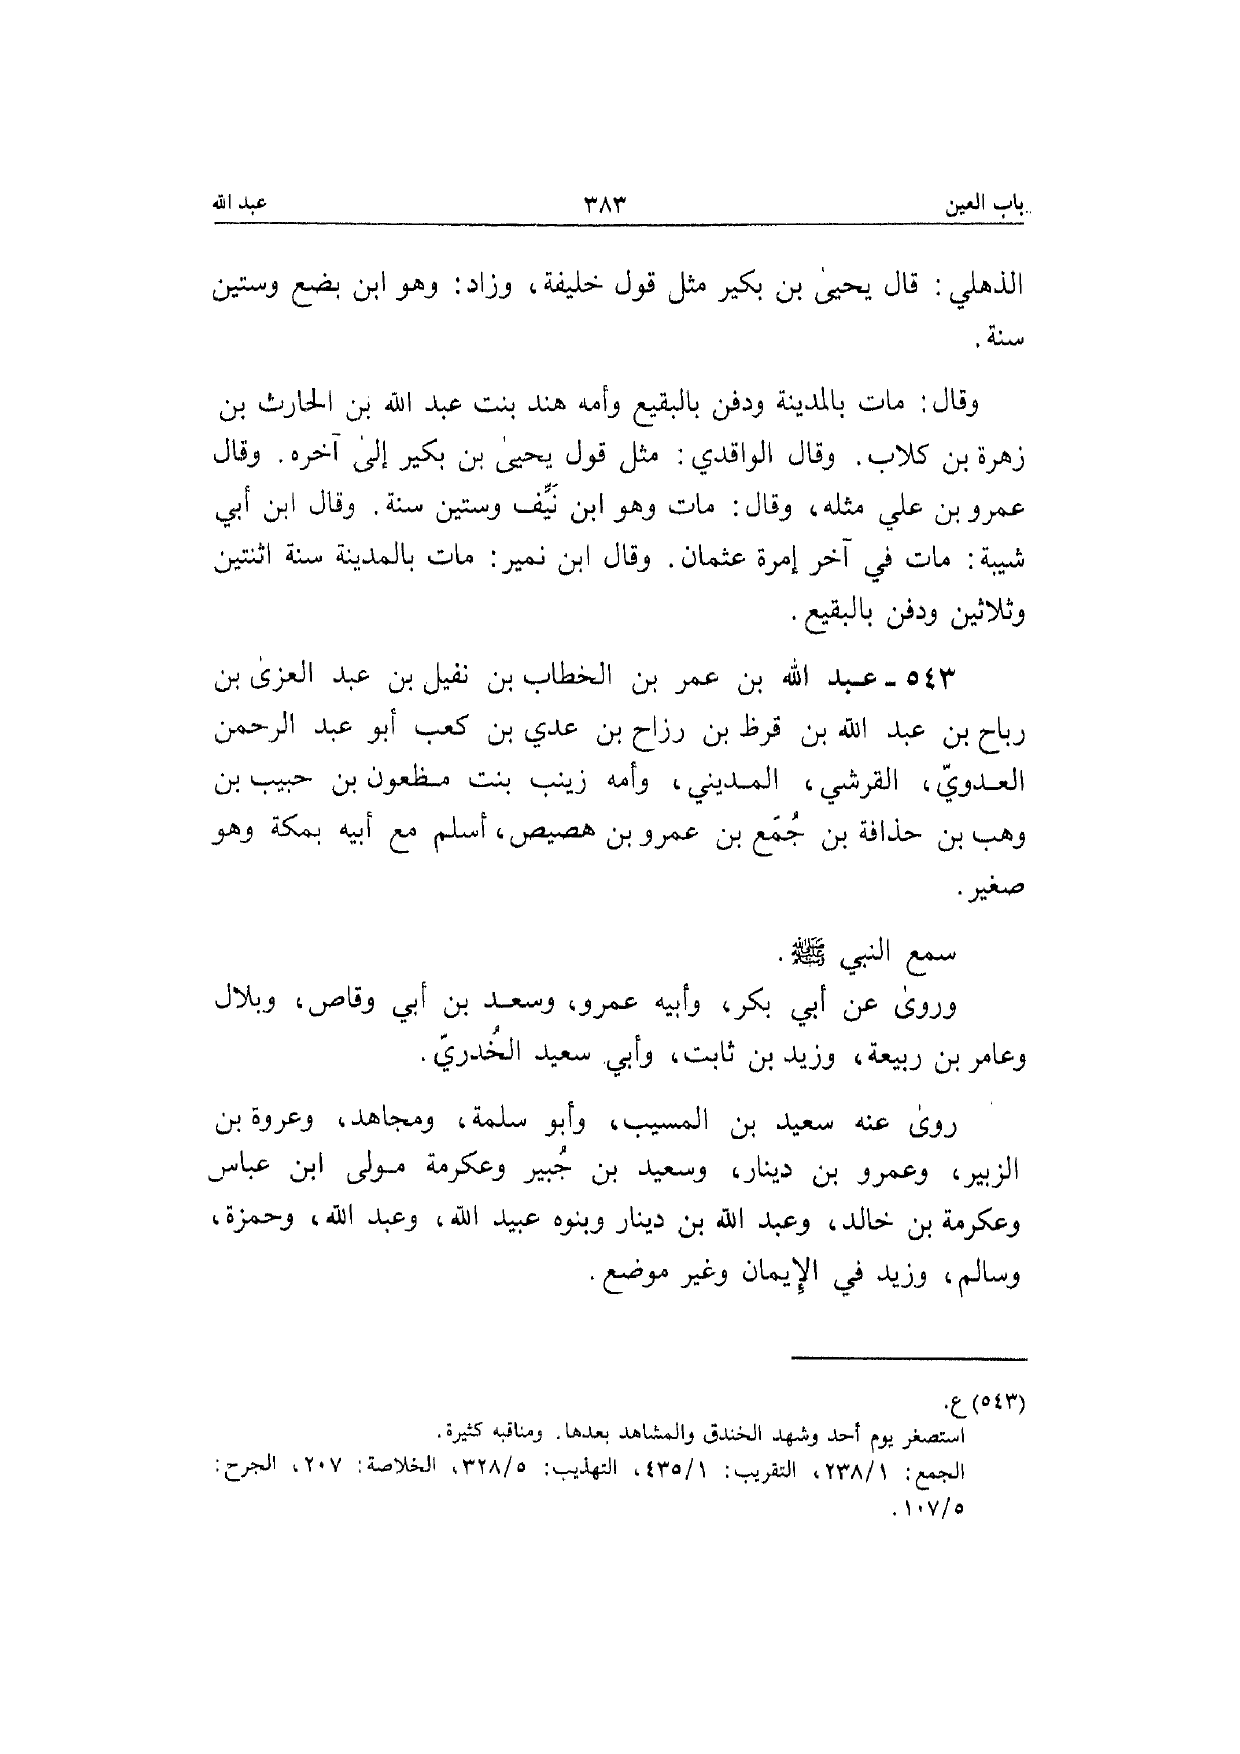 باب العين ٣٨٣ عبد الله
الذهلي: قال يحيىٰ بن بكير مثل قول خليفة، وزاد: وهو ابن بضع وستين
سنة.
وقال: مات بالمدينة ودفن بالبقيع وأمه هند بنت عبد الله بن الحارث بن
زهرة بن كلاب. وقال الواقدي: مثل قول يحيىٰ بن بكير إلىٰ آخره. وقال
عمرو بن علي مثله، وقال: مات وهو ابن نَيِّف وستين سنة. وقال ابن أبي
شيبة: مات في آخر إمرة عثمان. وقال ابن نمير: مات بالمدينة سنة اثنتين
وثلاثين ودفن بالبقيع.
٥٤٣ ـ عبد الله بن عمر بن الخطاب بن نفيل بن عبد العزىٰ بن
رباح بن عبد الله بن قرظ بن رزاح بن عدي بن كعب أبو عبد الرحمن
العدويّ، القرشي، المديني، وأمه زينب بنت مظعون بن حبيب بن
وهب بن حذافة بن جُمَع بن عمرو بن هصيص، أسلم مع أبيه بمكة وهو
صغير.
سمع النبي ﷺ.
وروىٰ عن أبي بكر، وأبيه عمرو، وسعد بن أبي وقاص، وبلال
وعامر بن ربيعة، وزيد بن ثابت، وأبي سعيد الخُدريّ.
روىٰ عنه سعيد بن المسيب، وأبو سلمة، ومجاهد، وعروة بن
الزبير، وعمرو بن دينار، وسعيد بن جُبير وعكرمة مولى ابن عباس
وعكرمة بن خالد، وعبد الله بن دينار وبنوه عبيد الله، وعبد الله، وحمزة،
وسالم، وزيد في الإيمان وغير موضع.
(٥٤٣) ع.
استصغر يوم أحد وشهد الخندق والمشاهد بعدها. ومناقبه كثيرة.
الجمع: ٢٣٨/١، التقريب: ٤٣٥/١، التهذيب: ٣٢٨/٥، الخلاصة: ٢٠٧، الجرح:
١٠٧/٥.